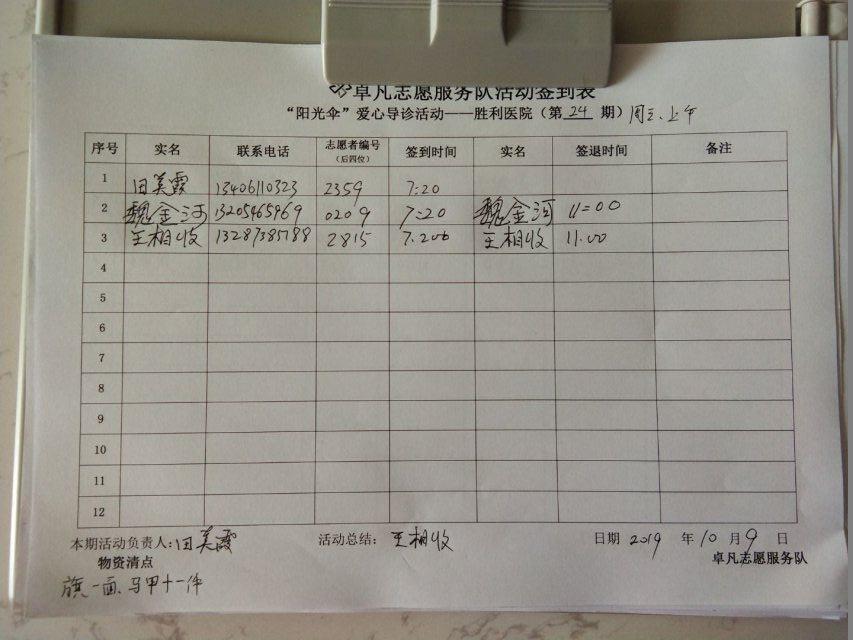 卓凡志愿服务队活动签到表
“阳光伞”爱心导诊活动——胜利医院（第 24 期）周三、上午
序号 实名 联系电话 志愿者编号（后四位） 签到时间 实名 签退时间 备注
1 田美霞 13406110323 2359 7:20
2 魏金河 13205465969 0209 7:20 魏金河 11:00
3 王相收 13287385788 2815 7.20 王相收 11.00
4
5
6
7
8
9
10
11
12
本期活动负责人：田美霞 活动总结：王相收 日期 2019 年 10 月 9 日
物资清点 卓凡志愿服务队
旗一面、马甲十一件